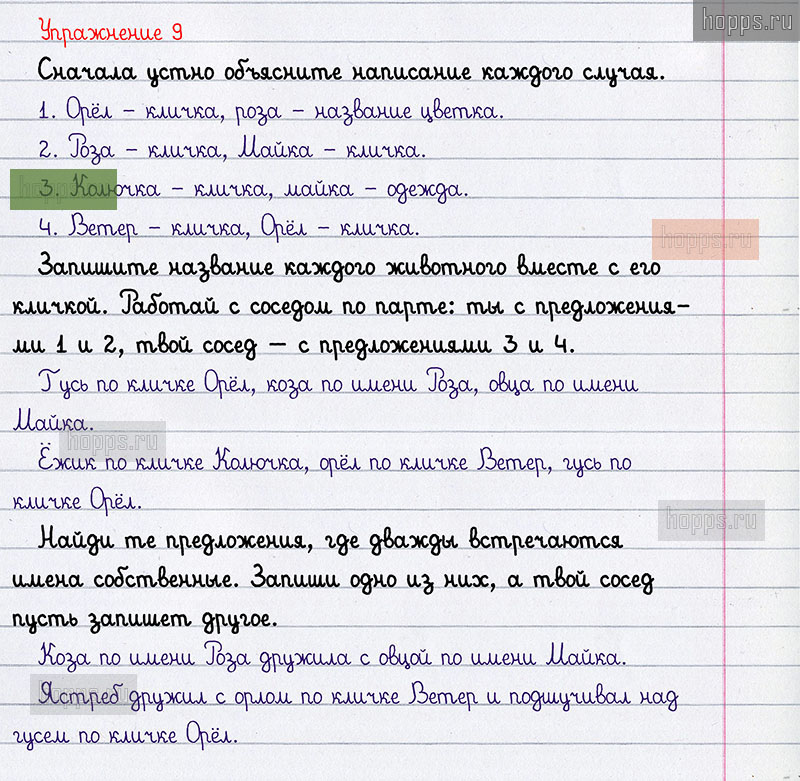 hopps.ru
Упражнение 9
Сначала устно объясните написание каждого случая.
1. Орёл – кличка, роза – название цветка.
2. Роза – кличка, Майка – кличка.
hopps.ru
3. Колючка – кличка, майка – одежда.
4. Ветер – кличка, Орёл – кличка.
hopps.ru
Запишите название каждого животного вместе с его
кличкой. Работай с соседом по парте: ты с предложения-
ми 1 и 2, твой сосед — с предложениями 3 и 4.
Гусь по кличке Орёл, коза по имени Роза, овца по имени
Майка.
hopps.ru
Ёжик по кличке Колючка, орёл по кличке Ветер, гусь по
кличке Орёл.
hopps.ru
Найди те предложения, где дважды встречаются
имена собственные. Запиши одно из них, а твой сосед
пусть запишет другое.
Коза по имени Роза дружила с овцой по имени Майка.
hopps.ru
Ястреб дружил с орлом по кличке Ветер и подшучивал над
гусем по кличке Орёл.